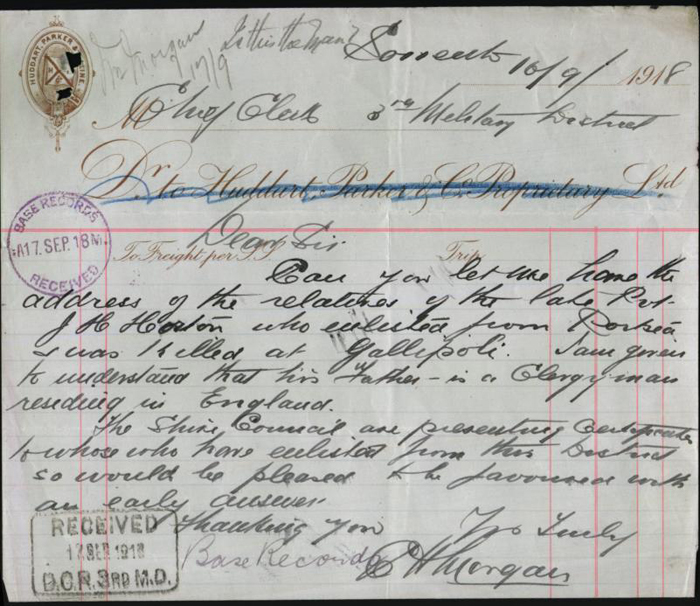 HUDDART, PARKER &
Wm Morgan
17/9
Is this the man?
Sorrento 16/9/ 1918
M Chief Clerk 3rd Military District
Dr. to Huddart, Parker & Co. Proprietary Ltd
BASE RECORDS
17 SEP. 18
RECEIVED
Dear Sir
To Freight per S.S. Trip
Can you let me have the
address of the relatives of the late Pvt.
J H Hoston who enlisted from Portsea
& was killed at Gallipoli. I am given
to understand that his Father - is a Clergyman
residing in England.
The Shire Council are presenting Certificates
to whose who have enlisted from this District
so would be pleased to be favoured with
an early answer.
Thanking you Yrs Truly
Base Records C H Morgan
RECEIVED
17 SEP 1918
D.C.R. 3RD M.D.